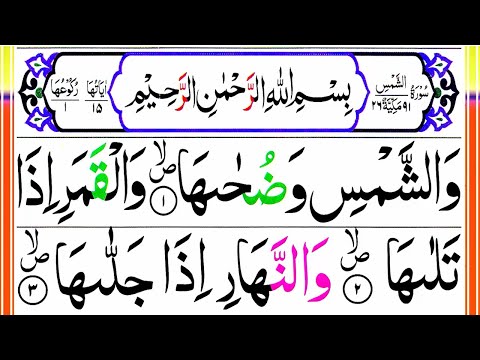 سُوْرَةُ الشَّمْسِ ٩١ مَكِّيَّةٌ ٢٦
بِسْمِ اللهِ الرَّحْمٰنِ الرَّحِيْمِ
اٰيَاتُهَا ١٥ رُكُوْعُهَا ١
وَالشَّمْسِ وَضُحٰىهَا ۙ ١ وَالْقَمَرِ اِذَا
تَلٰىهَا ۙ ٢ وَالنَّهَارِ اِذَا جَلّٰىهَا ۙ ٣